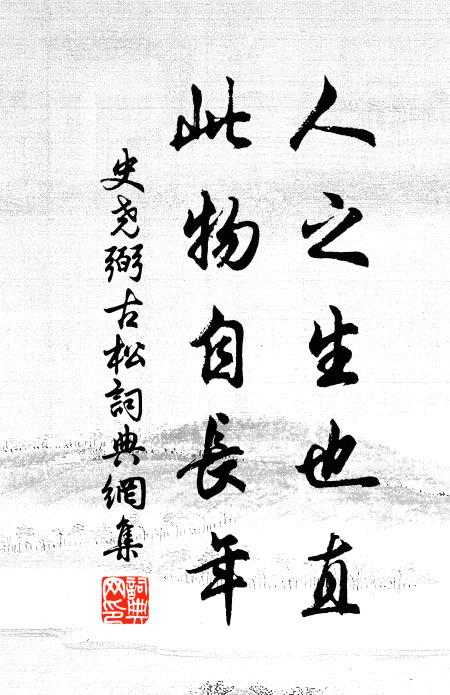 人之生也直
此物自長年
史尧弼古松詞典網集
詞典网印